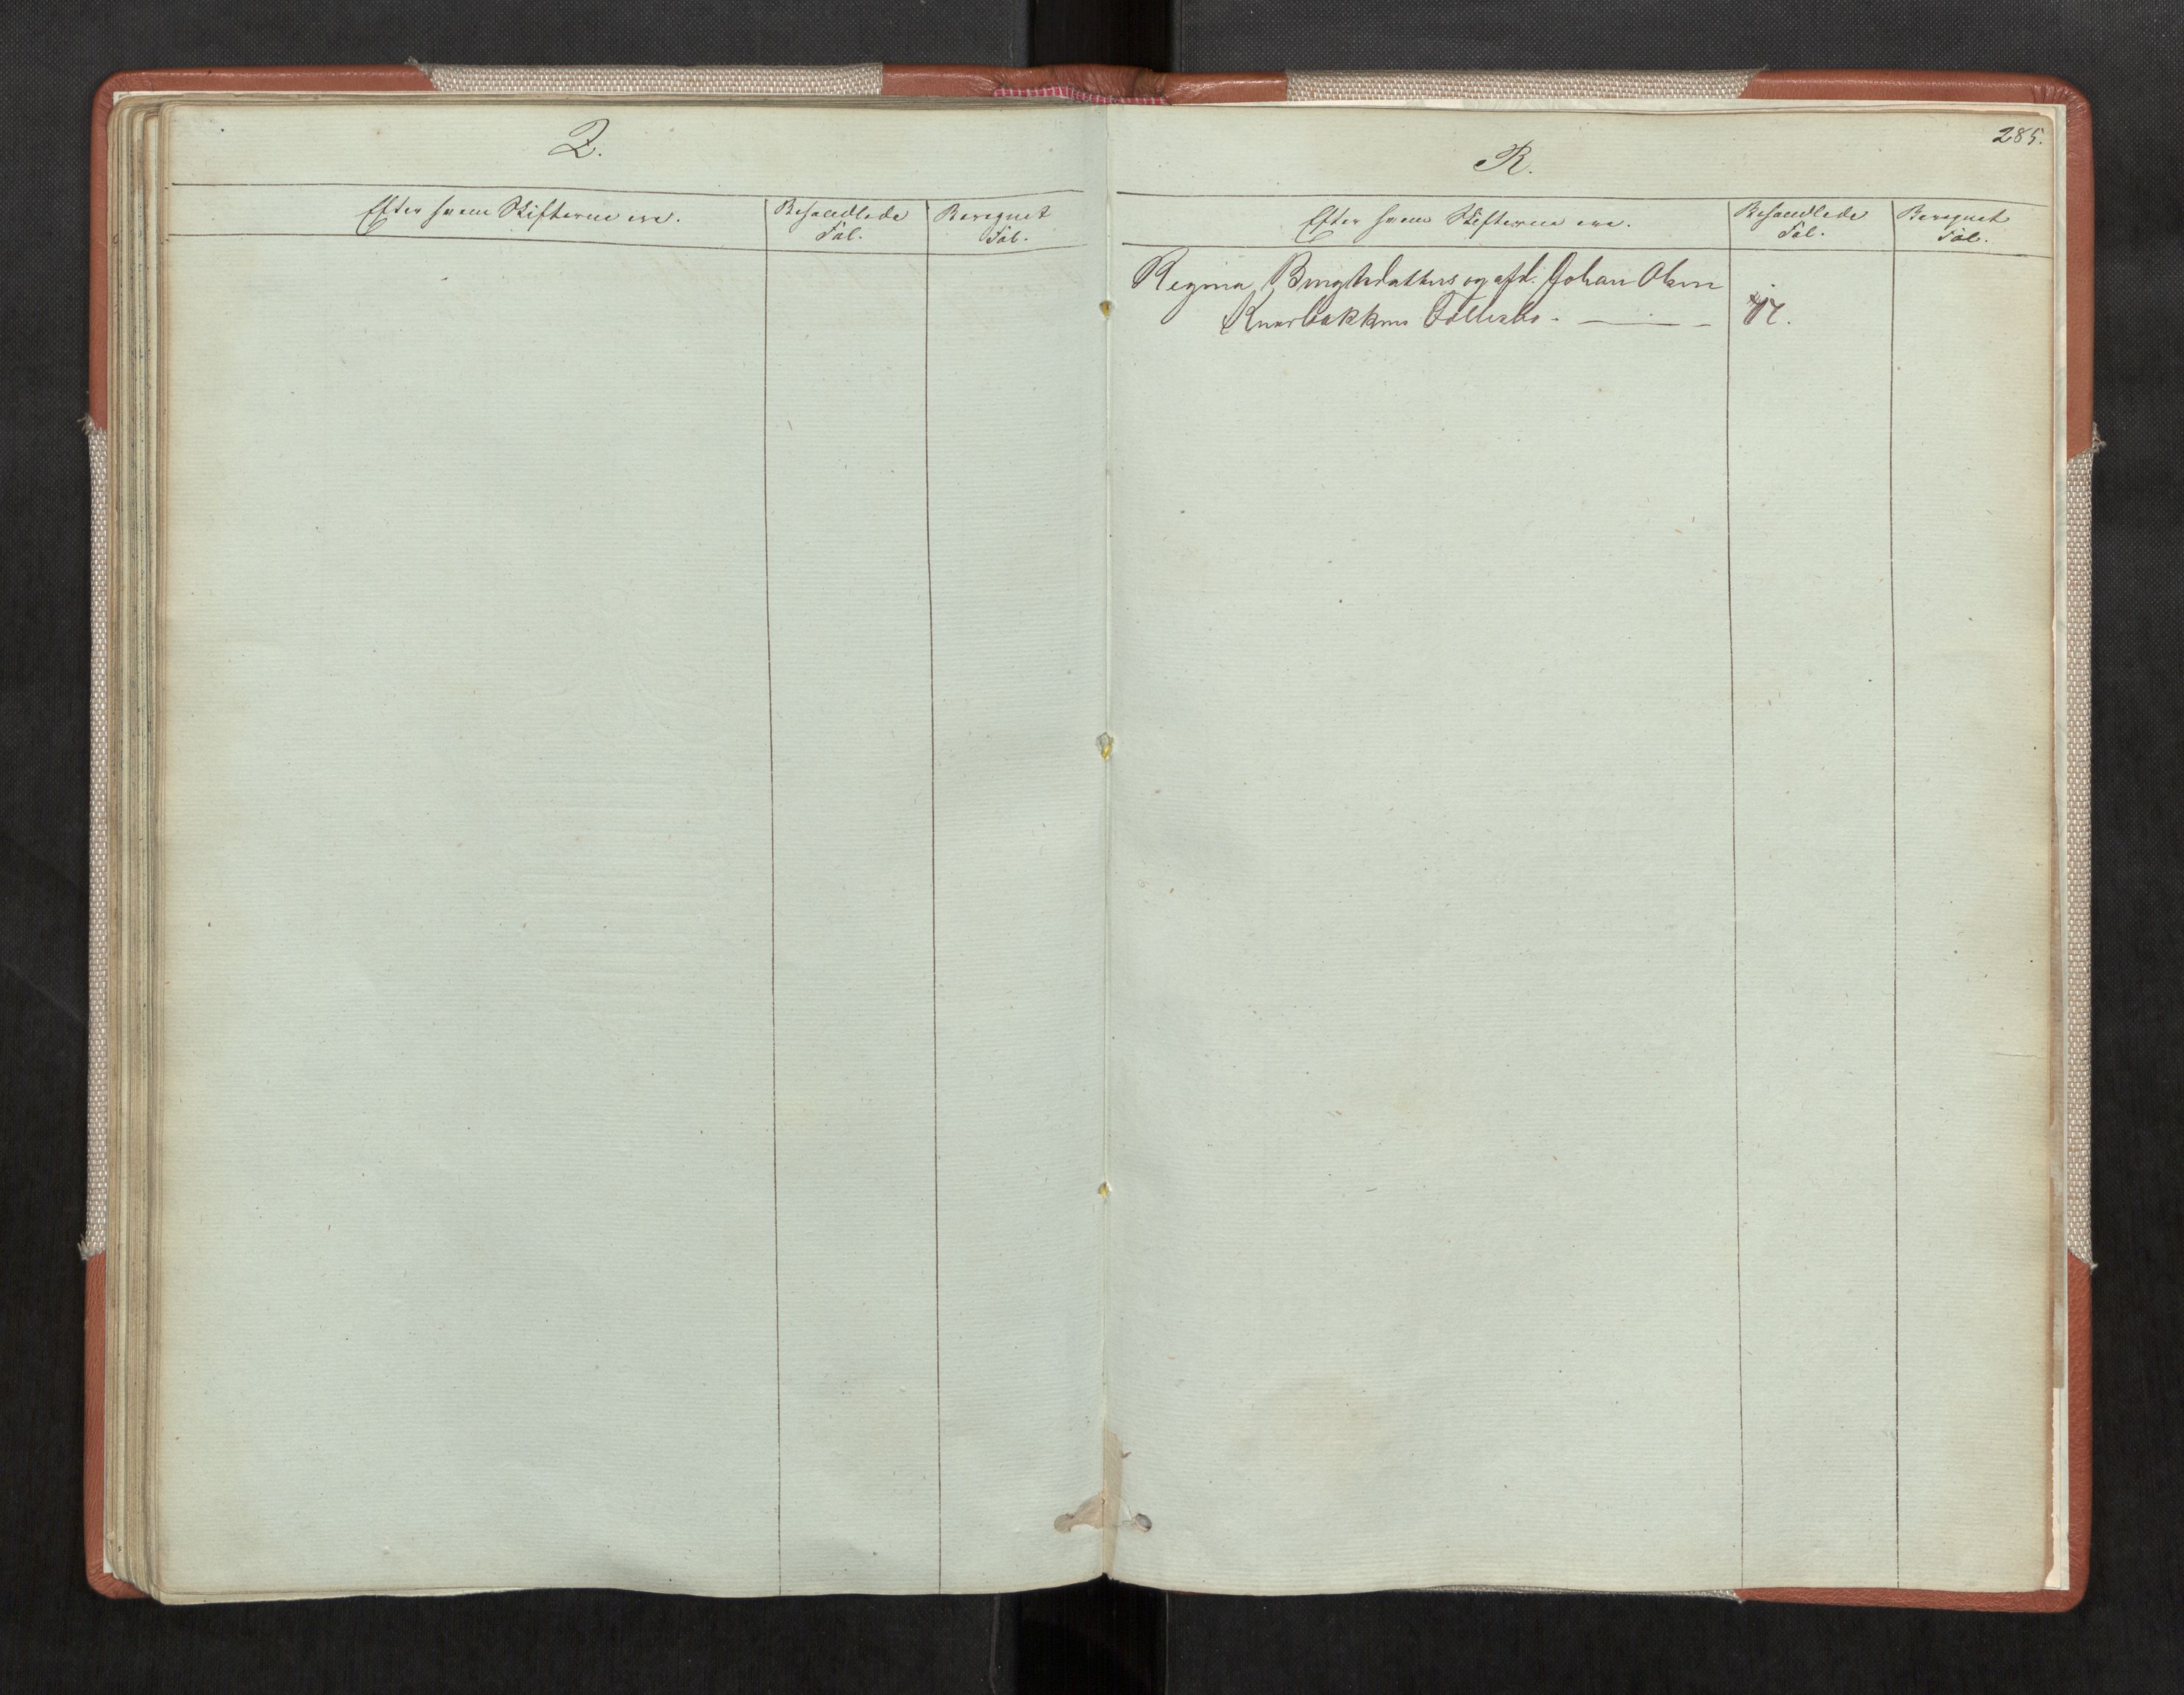 Q.
Efter hvem Skifterne ere.
Behandlede Fol.
Beregnet Fol.
285.
R.
Efter hvem Skifterne ere.
Behandlede Fol.
Beregnet Fol.
Regina Bengtsdatters og afd. Johan Olsen
Fællesbo -